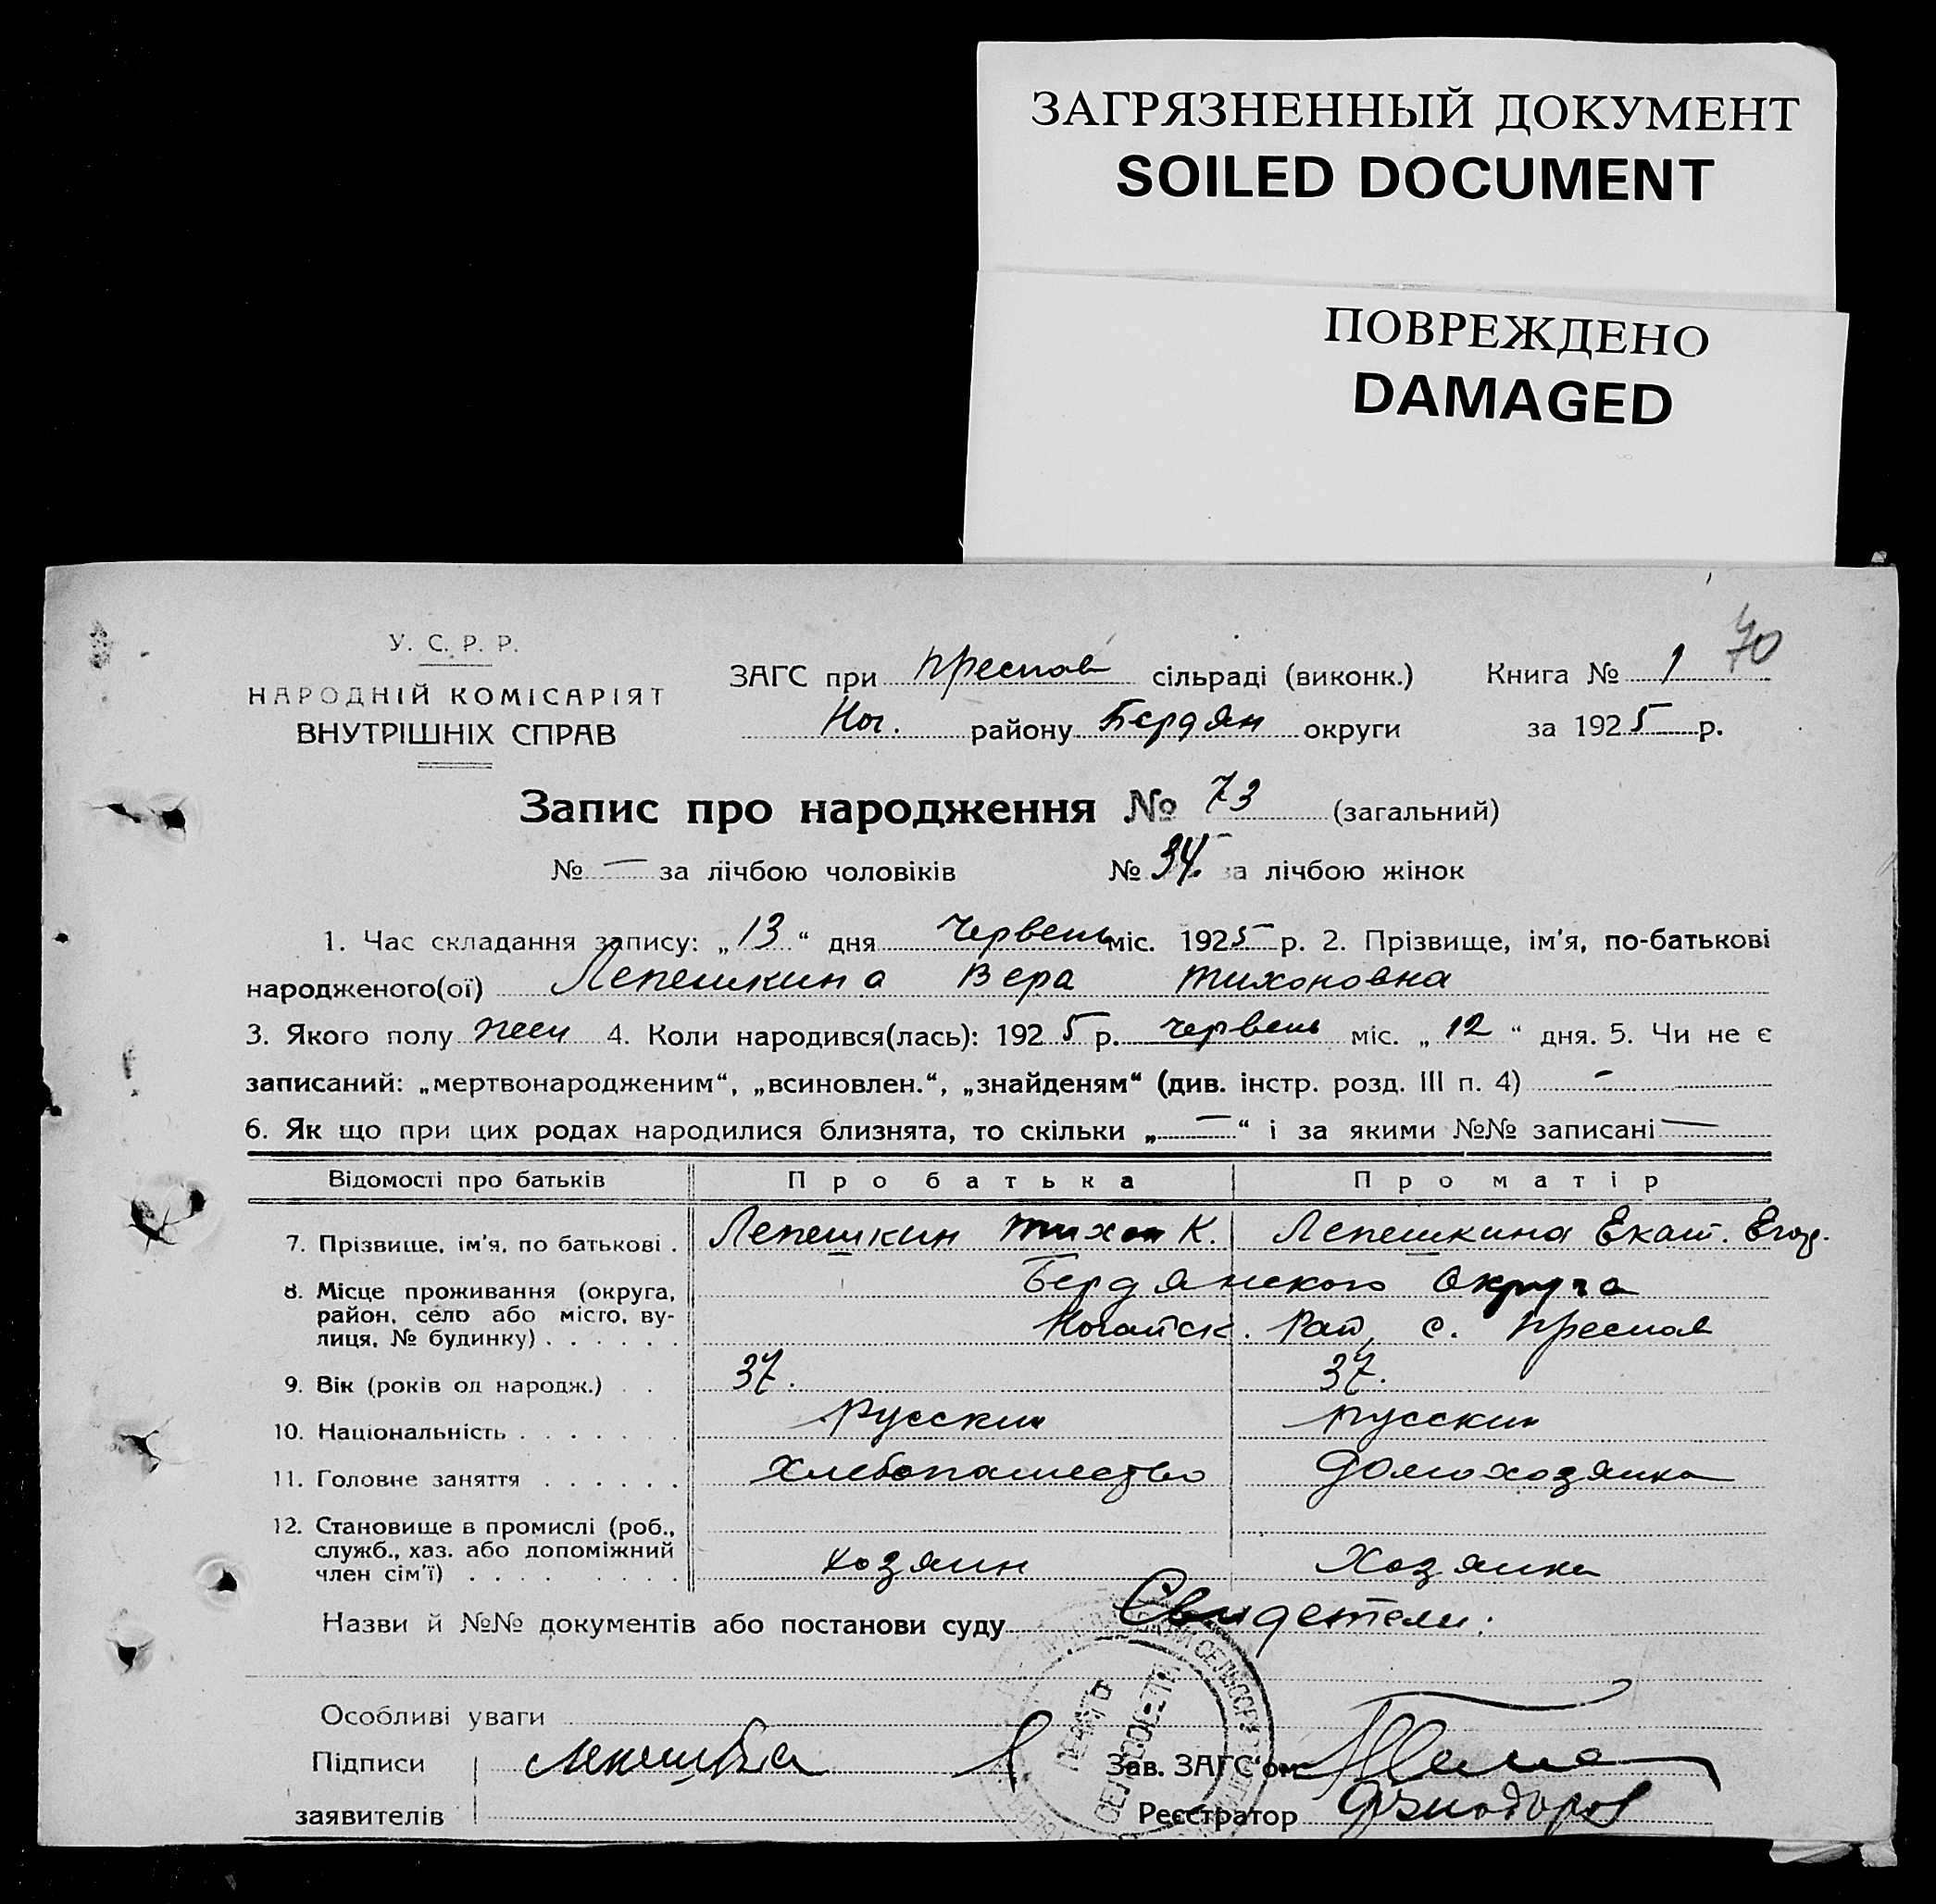 ЗАГРЯЗНЕННЫЙ ДОКУМЕНТ
SOILED DOCUMENT
ПОВРЕЖДЕНО
DAMAGED
40
У. С. Р. Р.
НАРОДНІЙ КОМІСАРІЯТ
ВНУТРІШНІХ СПРАВ
ЗАГС при Преслав сільраді (виконк.) Книга № 1
Ног. району Бердян округи за 1925 р.
Запис про народження № 73 (загальний)
№ — за лічбою чоловіків № 34. за лічбою жінок
1. Час складання запису: „13“ дня Червень міс. 1925 р. 2. Прізвище, ім'я, по-батькові
народженого(ої) Лепешкина Вера Тихоновна
3. Якого полу жен 4. Коли народився(лась): 1925 р. червень міс. „12“ дня. 5. Чи не є
записаний: „мертвонародженим“, „всиновлен.“, „знайденям“ (див. інстр. розд. III п. 4) -
6. Як що при цих родах народилися близнята, то скільки „—“ і за якими №№ записані —
Відомості про батьків Про батька Про матір
7. Прізвище, ім'я, по батькові . Лепешкин Тихон К. Лепешкина Екат. Егор.
8. Місце проживання (округа, Бердянского Округа
район, село або місто, ву-
лиця, № будинку) . . . . . . Ногайск. Рай, с. Преслав
9. Вік (років од народж.) . . 37. 37.
10. Національність . . . . . . . русский русский
11. Головне заняття . . . . . . Хлебопашество Домохозяйка
12. Становище в промислі (роб.,
служб., хаз. або допоміжний
член сім'ї) . . . . . . . . . хозяин Хозяйка
Назви й №№ документів або постанови суду Свидетели:
Особливі уваги
Підписи Зав. ЗАГС'ом
заявителів Реєстратор